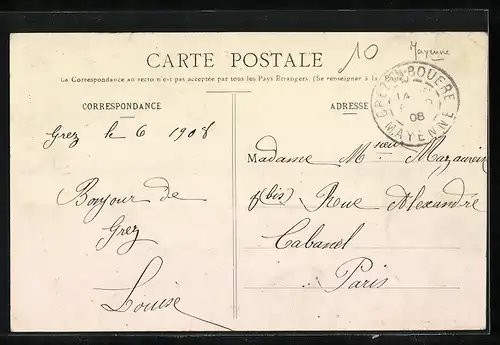 CARTE POSTALE
10
Mayenne
La Correspondance au recto n'est pas acceptée par tous les Pays Étrangers. (Se renseigner à la Poste)
CORRESPONDANCE
ADRESSE
GREZ-EN-BOUERE
08
MAYENNE
Grez le 6 1908
Bonjour de
Grez
Louise
Madame
(bis) Rue Alexandre
Cabanel
Paris